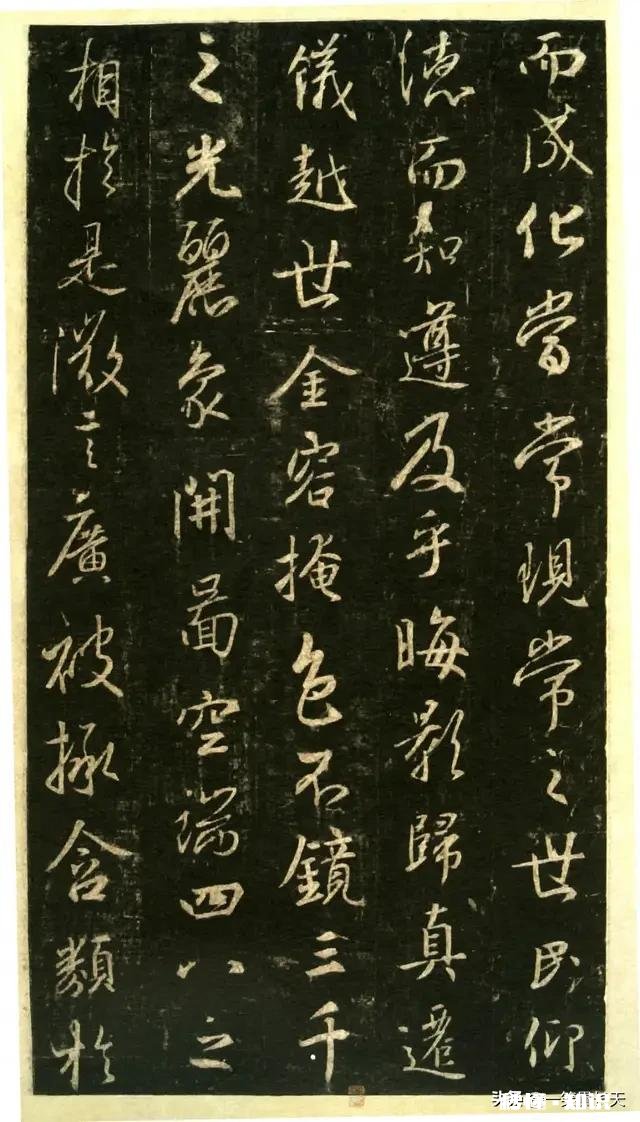 而成化當常現常之世民仰
德而知遵及乎晦影歸真遷
儀越世金容掩色不鏡三千
之光麗象開圖空端四八之
相於是微言廣被拯含類於